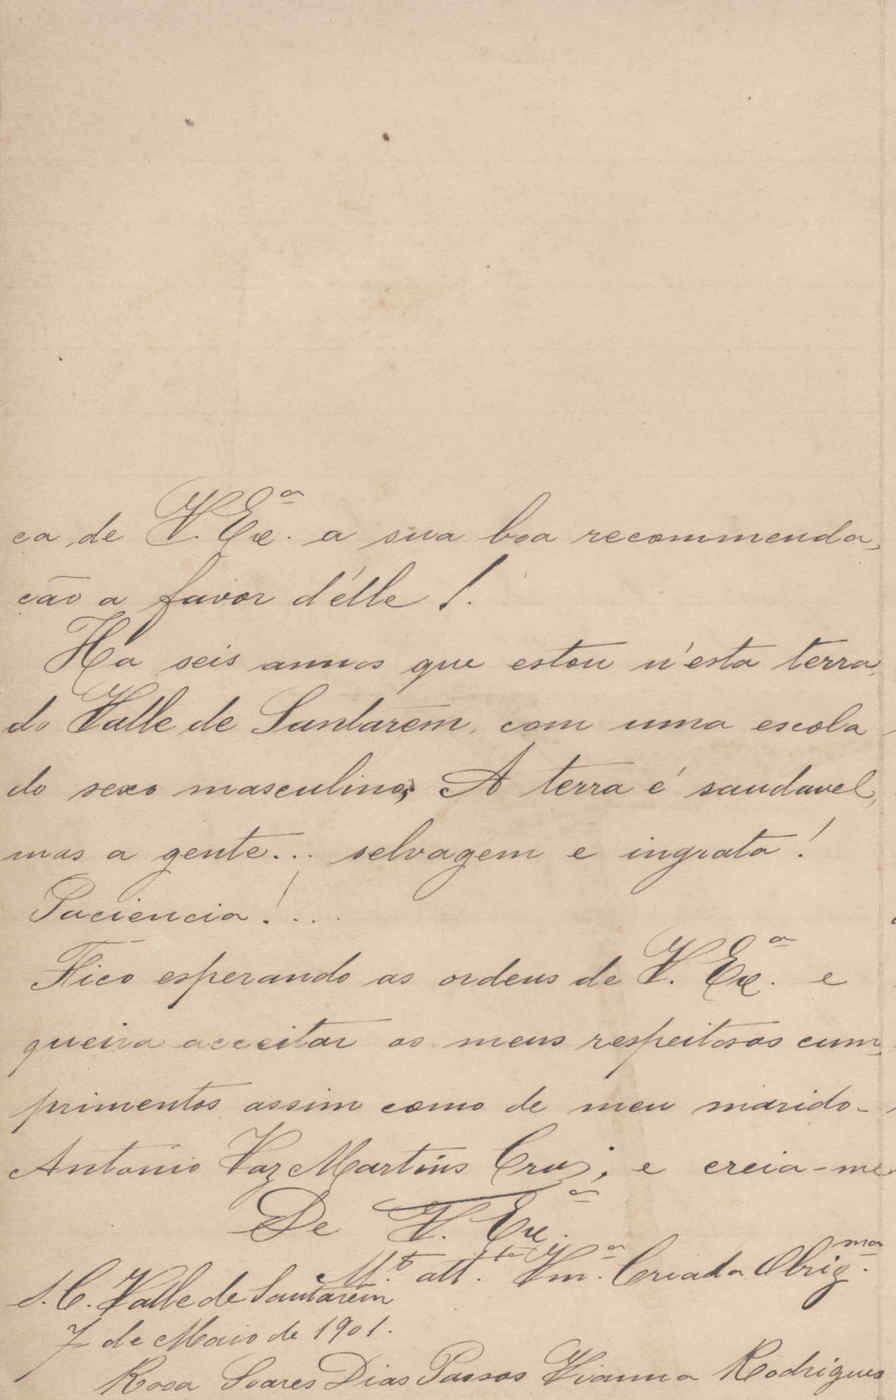 ça de V. Ex.ª a sua boa recommenda,
ção a favor d'élle !.
Ha seis annos que estou n'esta terra
do Valle de Santarem, com uma escola
do sexo masculino; A terra é saudavel,
mas a gente... selvagem e ingrata !
Paciencia !...
Fico esperando as ordens de V. Ex.ª e
queira acceitar os meus respeitosos cum,
primentos assim como de meu marido-
Antonio Vaz Martins Cruz; e creia-me
De V. Ex.ª
M.to att.ta Vn.ª Criada Obrig.ma
S. C. Valle de Santarem
7 de Maio de 1901.
Rosa Soares Dias Passos Vianna Rodrigues